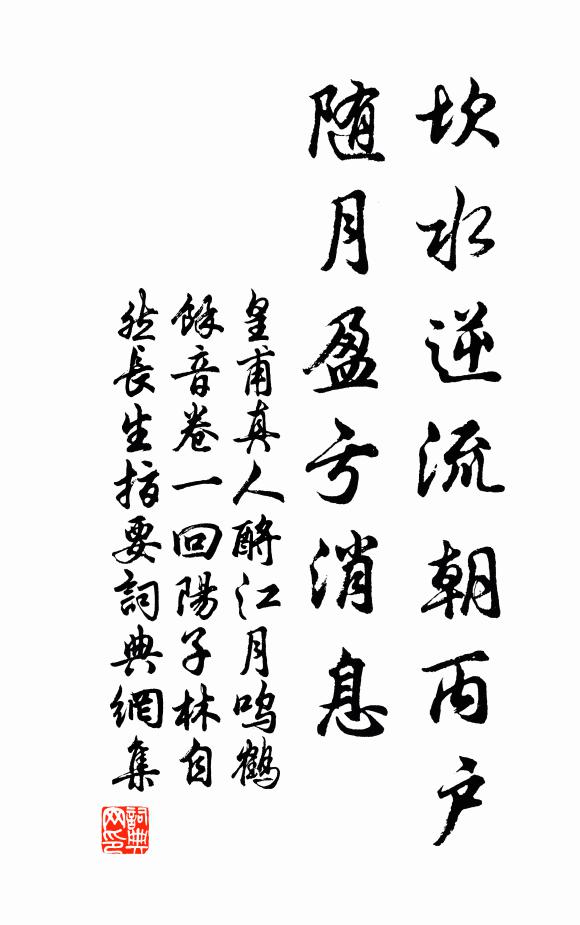 坎水逆流朝丙户
随月盈亏消息
皇甫真人酹江月鸣鹤
餘音卷一回陽子林自
然長生指要詞典網集
詞典网印